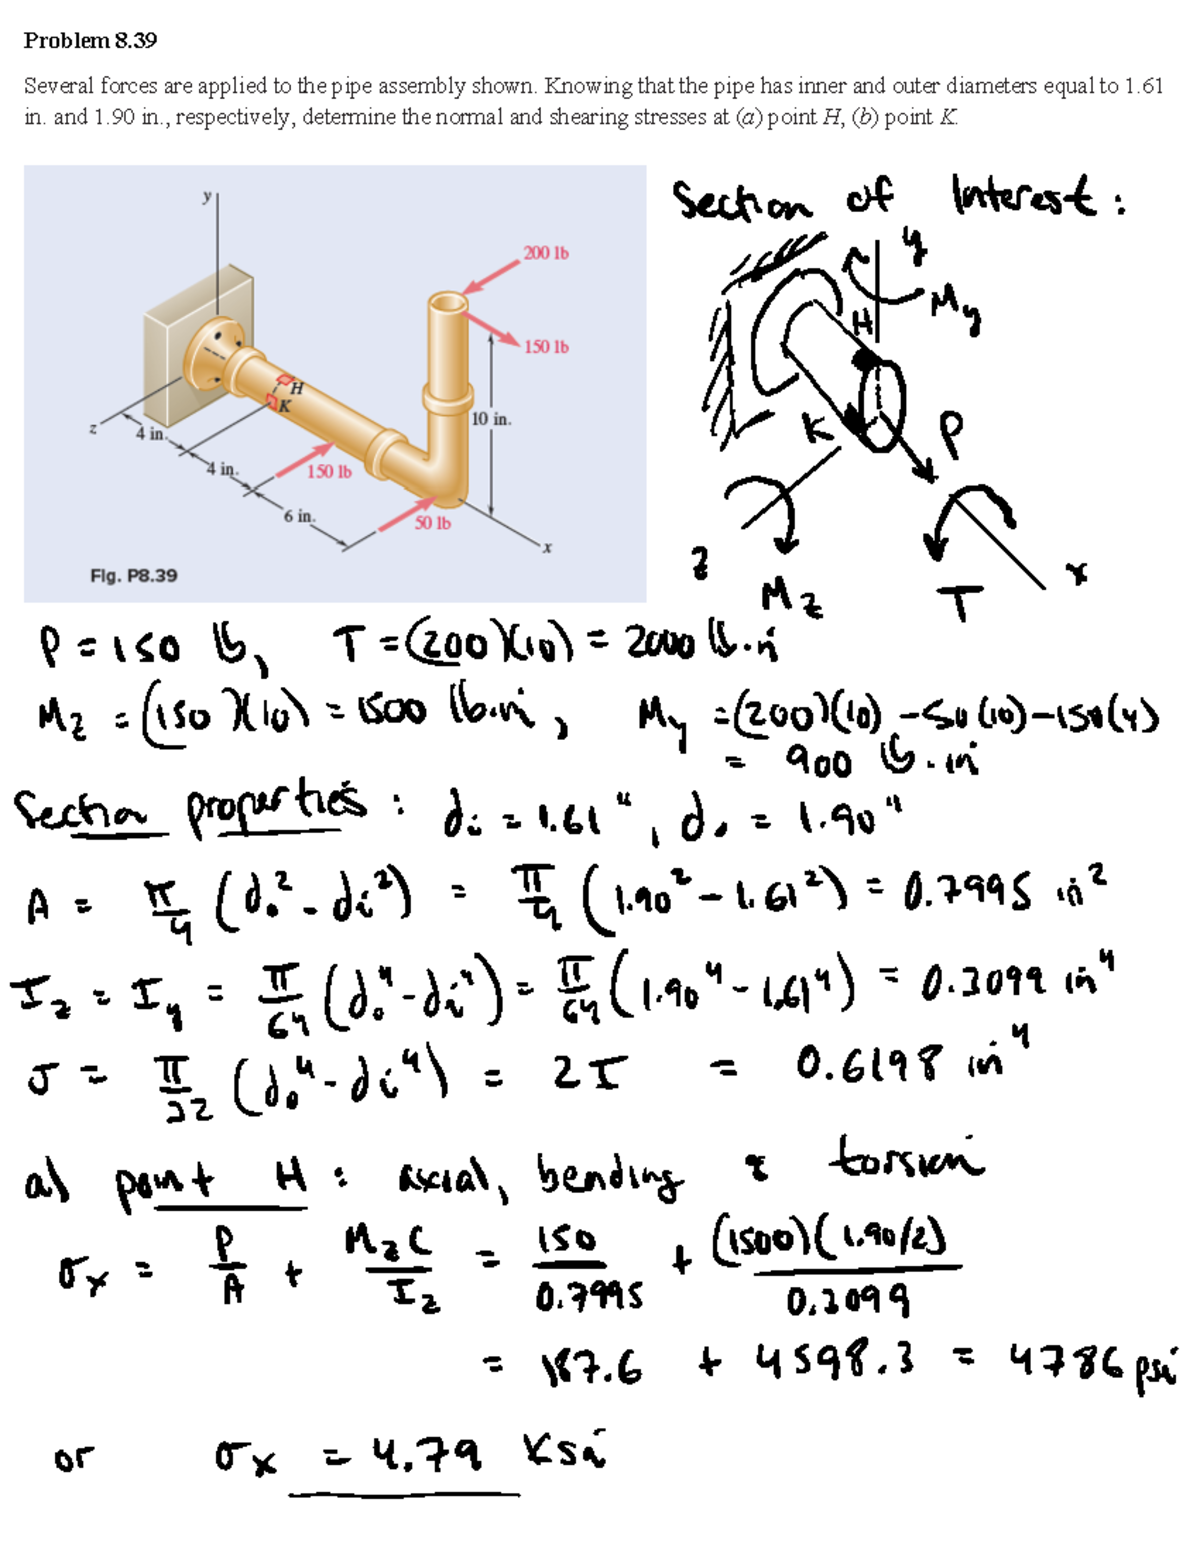 Problem 8.39
Several forces are applied to the pipe assembly shown. Knowing that the pipe has inner and outer diameters equal to 1.61
in. and 1.90 in., respectively, determine the normal and shearing stresses at (a) point H, (b) point K.
y
200 lb
150 lb
H
K
10 in.
z
4 in.
4 in.
150 lb
6 in.
50 lb
x
Fig. P8.39
Section of Interest:
y
My
H
K
P
z
Mz
T
x
P = 150 lb, T = (200)(10) = 2000 lb.in
Mz = (150)(10) = 1500 lb.in, My = (200)(10) - 50(10) - 150(4)
= 900 lb.in
Section properties: di = 1.61", do = 1.90"
A = π/4 (do² - di²) = π/4 (1.90² - 1.61²) = 0.7995 in²
Iz = Iy = π/64 (do⁴ - di⁴) = π/64 (1.90⁴ - 1.61⁴) = 0.3099 in⁴
J = π/32 (do⁴ - di⁴) = 2I = 0.6198 in⁴
a) point H: axial, bending & torsion
σx = P/A + MzC/Iz = 150/0.7995 + (1500)(1.90/2)/0.3099
= 187.6 + 4598.3 = 4786 psi
or σx = 4.79 Ksi